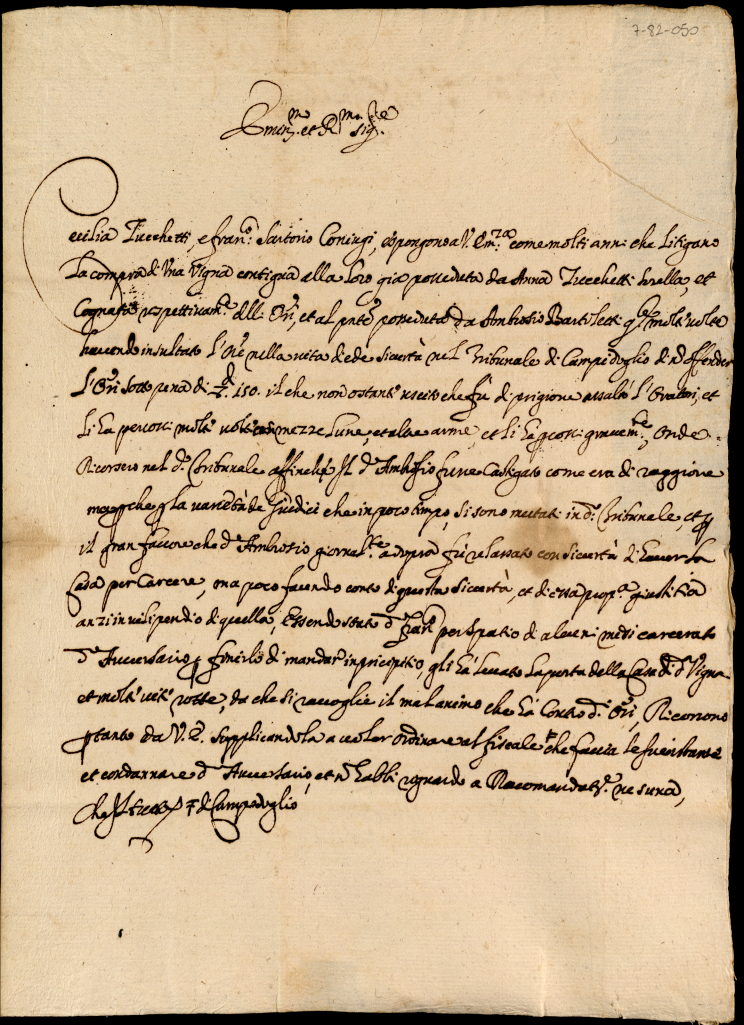 7-82-050
Emin.mo et R.mo Sig.re
Cecilia Zucchetti, e Fran.co Sartorio Coniugi, espongono a V. Em.za come molti anni che litigano
la compra di una vigna contigua alla loro già posseduta da Anna Zucchetti sorella, et
Cognata respettivam.te delli Ori, et al pnte posseduta da Ambrosio Bartiletti q.le molte volte
havendo insultato l'Ore nella vita diede sicurtà nel Tribunale di Campidoglio di nō offender
l'Ori sotto pena di 150. il che non ostante uscito che fù di prigione assaltò l'Oratori, et
li hà percossi molte volte mezze lune, et altre arme, et li hà percossi gravem.te, onde
Ricorsero nel d.o Tribunale affinche Il d.o Ambrosio fusse castigato come era di raggione
ma perche p la varietà de Giudici che in poco tempo, si sono mutati in d.o Tribunale, et p
il gran favore che d.o Ambrosio giornal.te adopra fù relassato con sicurtà d'haver la
Casa per Carcere, ma poco facendo conto di questa sicurtà, et di essa prop.a giustitia
anzi in vilipendio di quella, Essendo stato d.o per spatio di alcuni mesi carcerato
d.o Avversario p finirlo di mandar in pricipitio, gli hà levato la porta della Casa di d.a Vigna
et molte viti rotte, da che si raccoglie il mal animo che hà contro d.i Ori, Ricorrono
ptanto da V. E. supplicandola a voler ordinare al fiscale che faccia le sue instanze
et condannare d.o Avversario, et nō habbi riguardo a Racomandat.e nesuna,
Che Il di Campidoglio